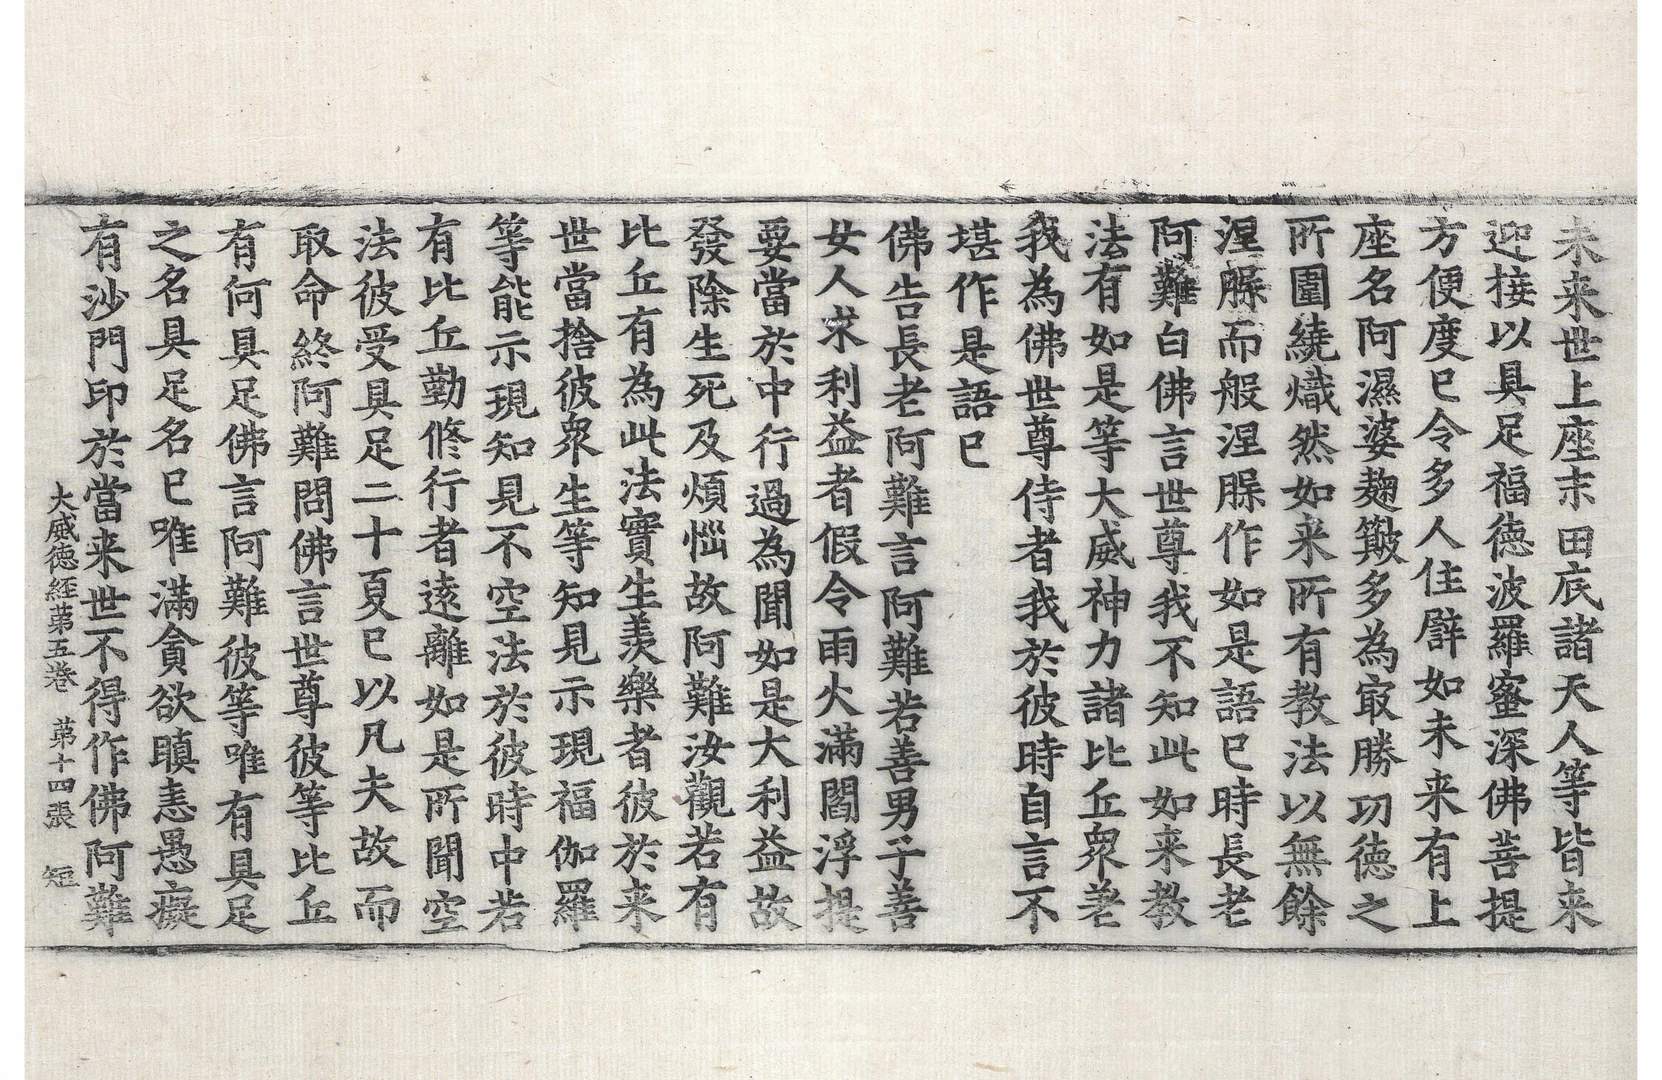 未来世上座末田底諸天人等皆来
迎接以具足福德波羅蜜深佛菩提
方便度已令多人住辟如未来有上
座名阿濕婆麹𥷚多為㝡勝功德之
所圍繞熾然如来所有教法以無餘
涅槃而般涅槃作如是語已時長老
阿難白佛言世尊我不知此如来教
法有如是等大威神力諸比丘衆若
我為佛世尊侍者我於彼時自言不
堪作是語已
佛告長老阿難言阿難若善男子善
女人求利益者假令雨火滿閻浮提
要當於中行過為聞如是大利益故
發除生死及煩惱故阿難汝觀若有
比丘有為此法實生羡樂者彼於来
世當捨彼衆生等知見示現福伽羅
等能示現知見不空法於彼時中若
有比丘勤脩行者遠離如是所聞空
法彼受具足二十夏已以凡夫故而
取命終阿難問佛言世尊彼等比丘
有何具足佛言阿難彼等唯有具足
之名具足名已唯滿貪欲瞋恚愚癡
有沙門印於當来世不得作佛阿難
大威德經第五卷 第十四張 短